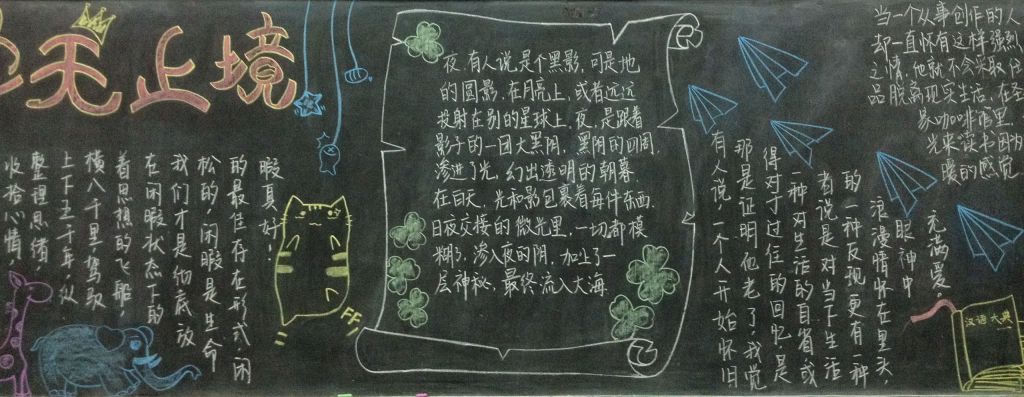 无止境
收拾心情
整理思绪
上下五千年，纵
横八千里驾驭
着思想的飞船，
在闲暇状态下的
我们才是彻底放
松的，闲暇是生命
的最佳存在形式，闲
暇真好！
夜，有人说是个黑影，可是地
的圆影，在月亮上，或者远远
投射在别的星球上，夜，是跟着
影子的一团大黑阴，黑阴的四周，
渗进了光，幻出透明的朝暮
在白天，光和影包裹着每件东西，
日夜交接的微光里，一切都模
糊了，渗入夜的阴，加上了一
层神秘，最终流入大海
有人说一个人开始怀旧
那是证明他老了，我觉
得对于过往的回忆是
一种对生活的自省或
者说是对当下生活
的一种反现更有一种
浪漫情怀在里头，
眼神中
充满爱，
当一个从事创作的人
却一直怀有这样强烈
之情，他就不会采取任
品脱离现实生活，在圣
咖啡馆里，
来读书因为
暖的感觉
汉语大典